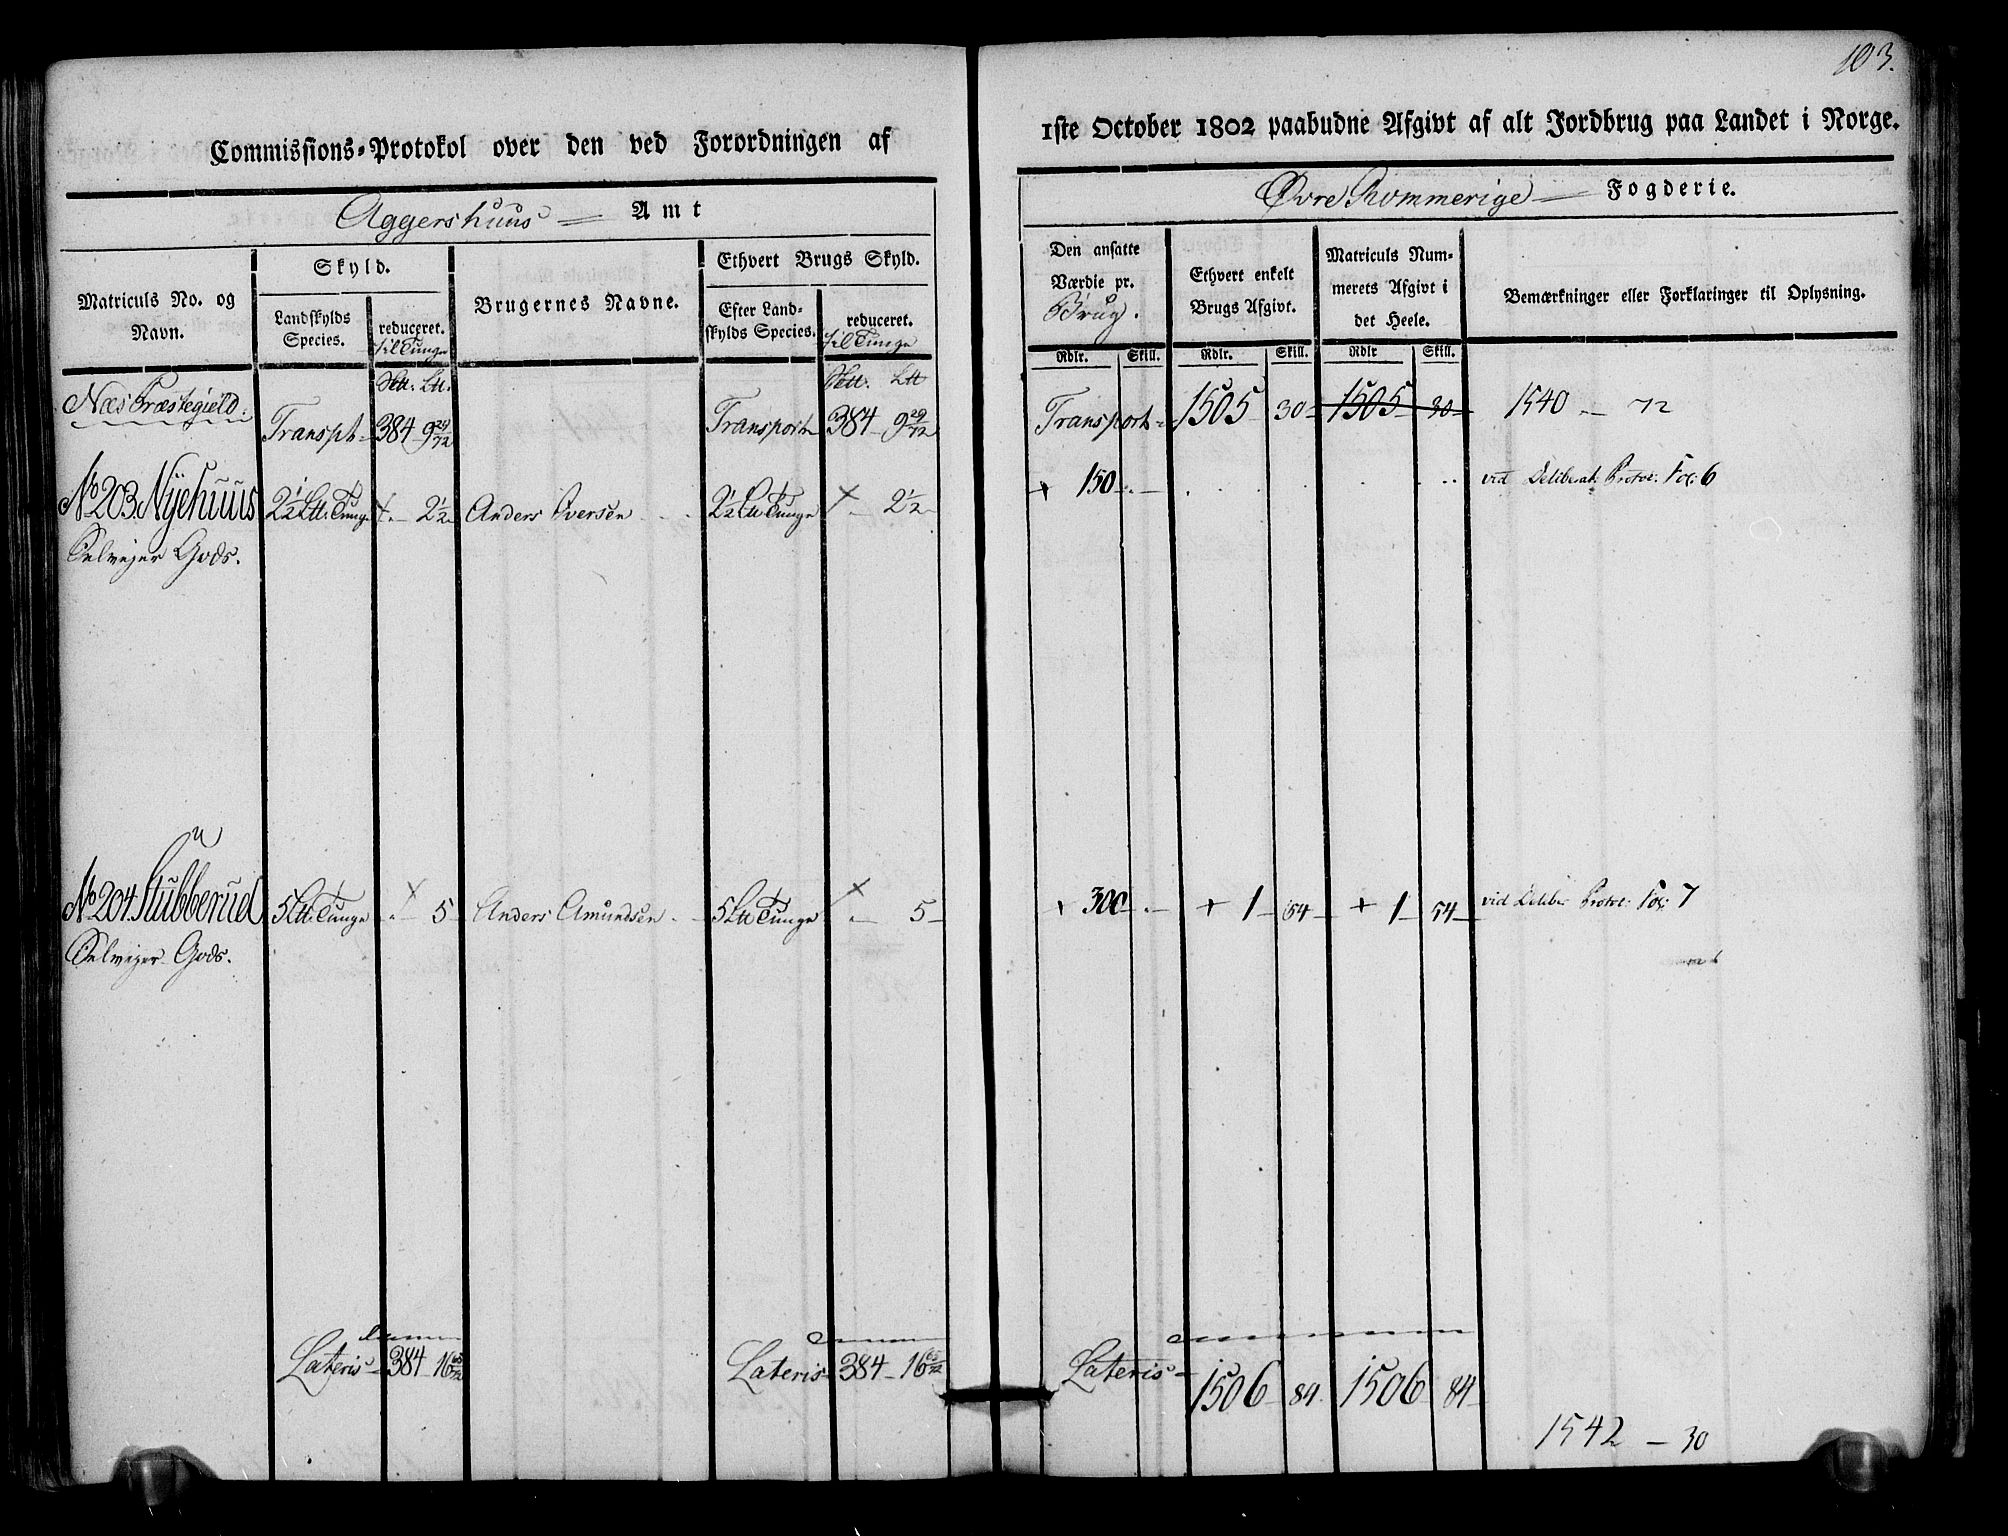 103.
Commissions-Protokol over den ved Forordningen af
1ste October 1802 paabudne Afgivt af alt Jordbrug paa Landet i Norge.
Aggershuus Amt
Øvre Rommerige Fogderie.
Matriculs No. og Navn.
Skyld.
Landskylds Species.
reduceret. til Tunge
Brugernes Navne.
Ethvert Brugs Skyld.
Efter Landskylds Species.
reduceret. til Tunge
Den ansatte Værdie pr. Brug.
Ethvert enkelt Brugs Afgivt.
Matriculs Nummerets Afgivt i det Heele.
Bemærkninger eller Forklaringer til Oplysning.
Rdlr. Skill. Rdlr. Skill. Rdlr Skill.
Næs Præstegield: Transpt 384 9 29/72 Transport 384 9 29/72 Transport 1505 30 1505 30 1540 - 72
No 203. Nÿehuus 2½ Ltt: Tunge + - 2½ Anders Iversen 2½ Ltt Tunge + - 2½ + 150 vid Deliberat: Protoc: Fol: 6
Selvejer Gods.
No 204. Stubberud 5 Ltt: Tunge + - 5 Anders Amundsen 5 Ltt Tunge + - 5 + 300 + 1 54 + 1 54 vid Deliber Protoc: Fol: 7
Selvejer Gods.
Lateris 384 16 65/72 Lateris 384 16 65/72 Lateris 1506 84 1506 84
1542 - 30